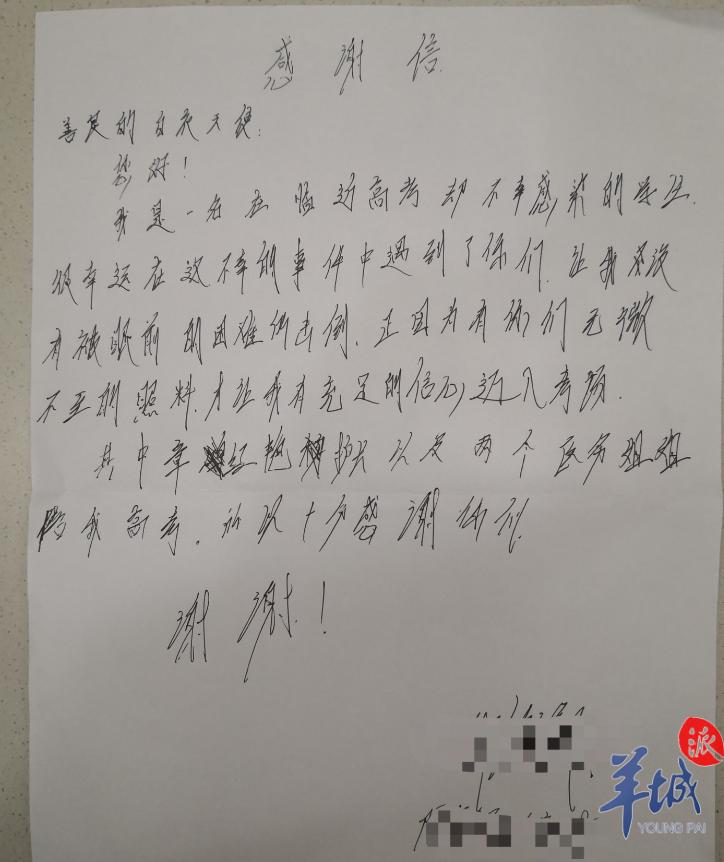 感谢信
善良的白衣天使:
您好!
我是一名在临近高考却不幸感染的学生.
很幸运在这不幸的事件中遇到了你们.让我并没
有被眼前的困难所击倒.正因为有你们无微
不至的照料.才让我有充足的信心迈入考场.
其中章红艳护士以及两个医务姐姐
陪我高考.所以十分感谢你们
谢谢!
派
羊城
YOUNG PAI